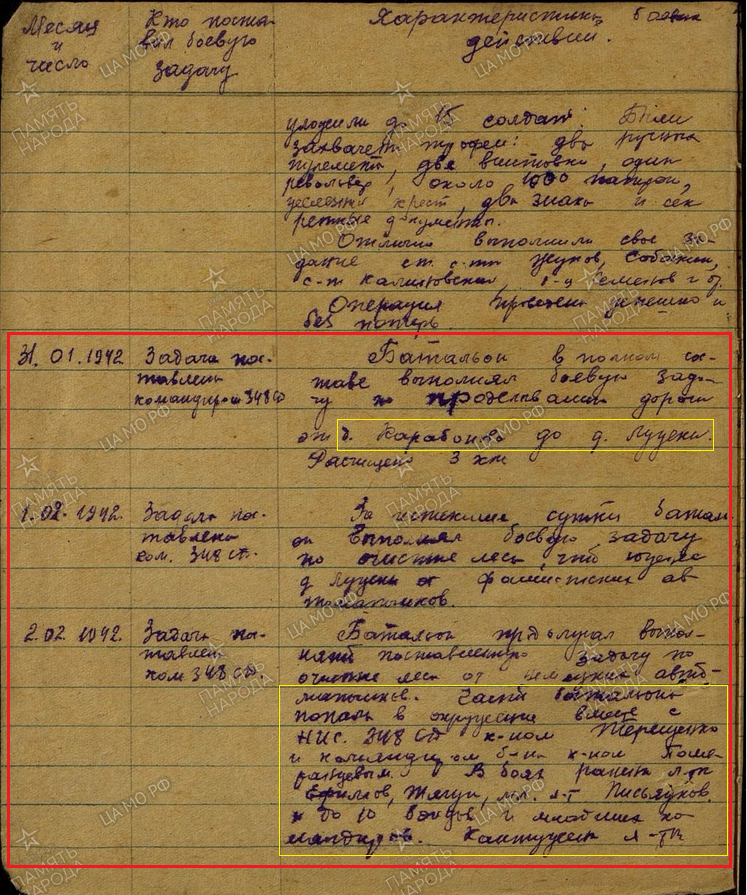 Месяц и число
Кто поста-
вил боевую
задачу
Характеристика боевых
действий.
уложили до 15 солдат. Были
захвачены трофеи: два ручных
пулемета, две винтовки, один
револьвер, около 1000 патрон,
крест, два знака и сек
ретные документы.
Отлично выполнили свое за-
дание ст. с-ты Жуков,
с-т Калиновский, и др.
Операция проведена успешно и
без потерь.
31. 01. 1942.
Задача пос-
тавлена
командиром 348 СД
Батальон в полном сос-
таве выполнял боевую зада-
чу по проделыванию дороги
от д. Карабоново до д. Луцены.
Расчищено 3 км
1. 02. 1942.
Задача пос-
тавлена
ком. 348 СД.
За истекшие сутки баталь
он выполнял боевую задачу
по очистке леса, что
д Луцены от фашистских ав
томатчиков.
2.02 1942.
Задача пос-
тавлен
ком 348 СД.
Батальон продолжал выпол-
нять поставленную задачу по
очистке леса от немецких авто-
матчиков. Часть батальона
попала в окружение вместе с
НИС. 348 СД к-ном Терещенко
и командиром б-на к-ном Поме-
ранцевым. В боях ранены л-ты
Ефимов, мл. л-т Письяуков.
и до 10 бойцов и младших ко
мандиров. Контужен л-т
ПАМЯТЬ НАРОДА
ЦАМО.РФ